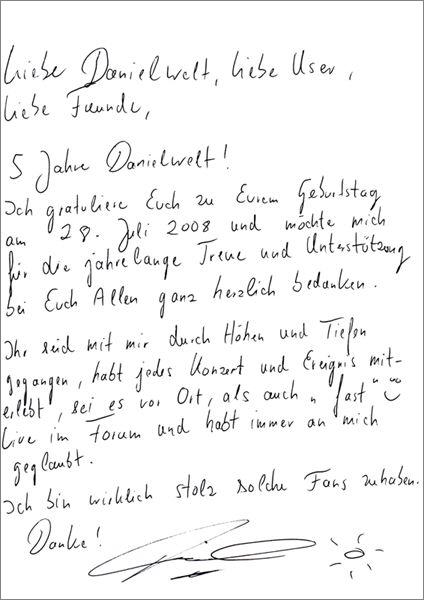 Liebe Danielwelt, liebe User,
liebe Freunde,
5 Jahre Danielwelt!
Ich gratuliere Euch zu Eurem Geburtstag
am 28. Juli 2008 und möchte mich
für die jahrelange Treue und Unterstützung
bei Euch Allen ganz herzlich bedanken.
Ihr seid mit mir durch Höhen und Tiefen
gegangen, habt jedes Konzert und Ereignis mit-
erlebt, sei es vor Ort, als auch „fast"
live im Forum und habt immer an mich
geglaubt.
Ich bin wirklich stolz solche Fans zuhaben.
Danke!